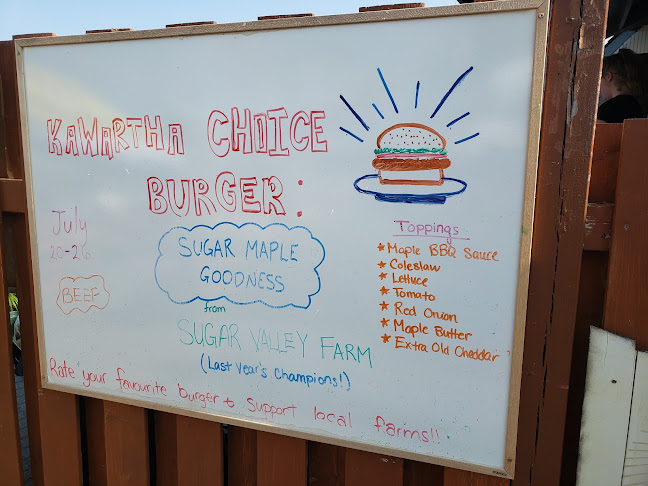 KAWARTHA CHOICE
BURGER:
July
20-26
BEEF
SUGAR MAPLE
GOODNESS
from
SUGAR VALLEY FARM
(Last Year's Champions!)
Toppings
* Maple BBQ Sauce
* Coleslaw
* Lettuce
* Tomato
* Red Onion
* Maple Butter
* Extra Old Cheddar
Rate your favourite burger to support local farms!!